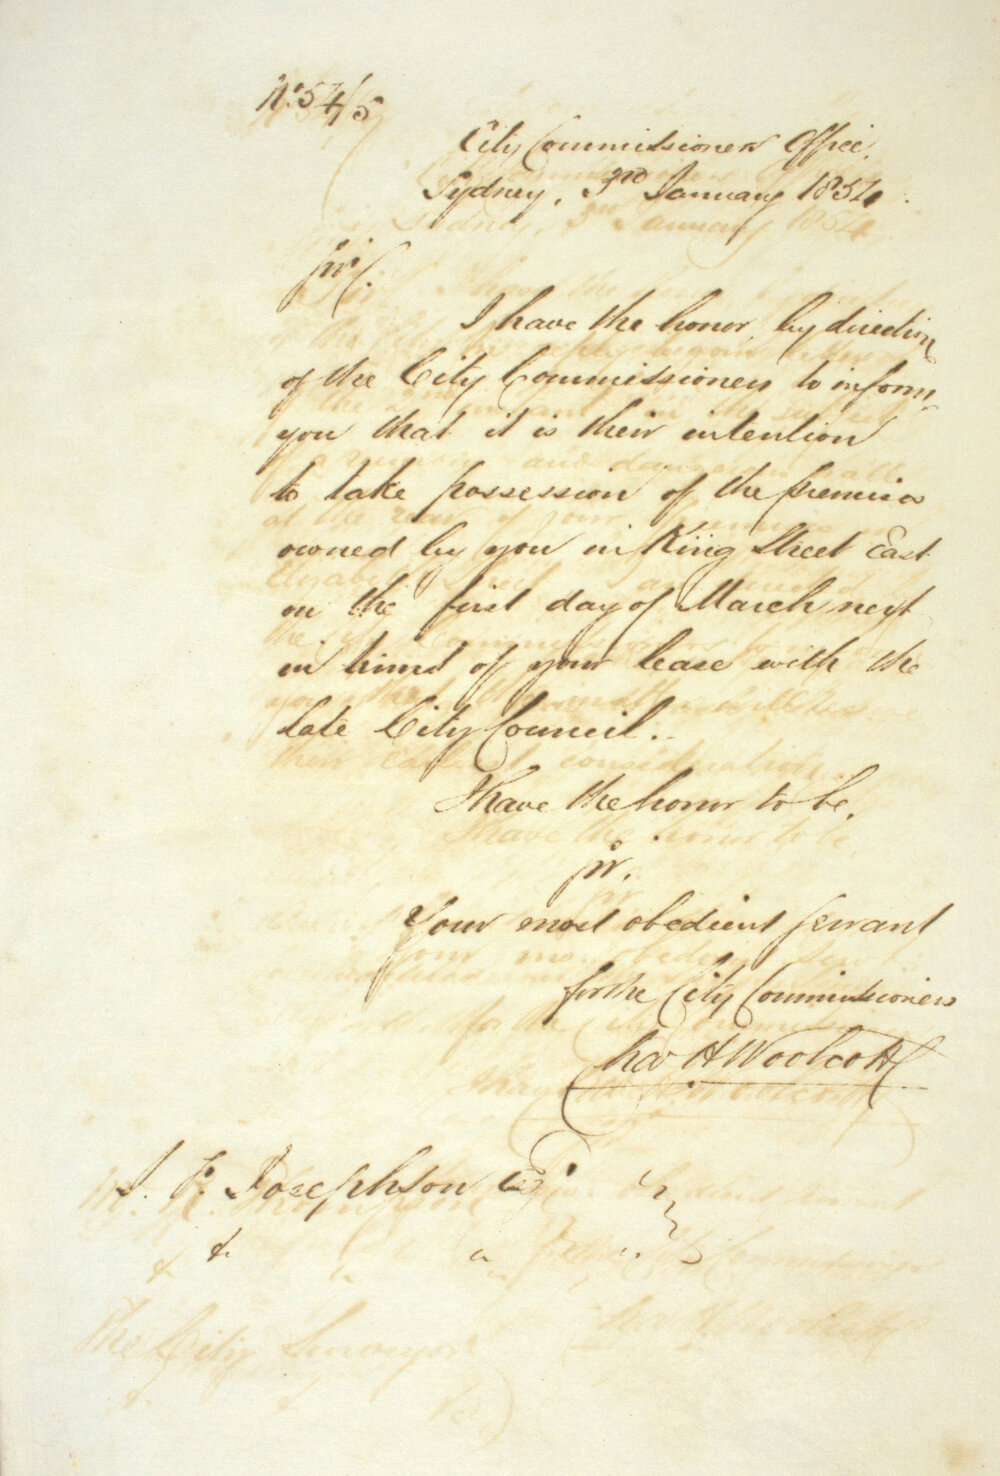 No. 54/5
City Commissioners Office,
Sydney, 3rd January 1854.
Sir,
I have the honor, by direction
of the City Commissioners to inform
you that it is their intention
to take possession of the premises
owned by you in King Street East
on the first day of March next
in terms of your lease with the
late City Council.
I have the honor to be,
Sir,
Your most obedient servant
for the City Commissioners
Chas H Woolcott
J. F. Josephson Esq.
&c " "